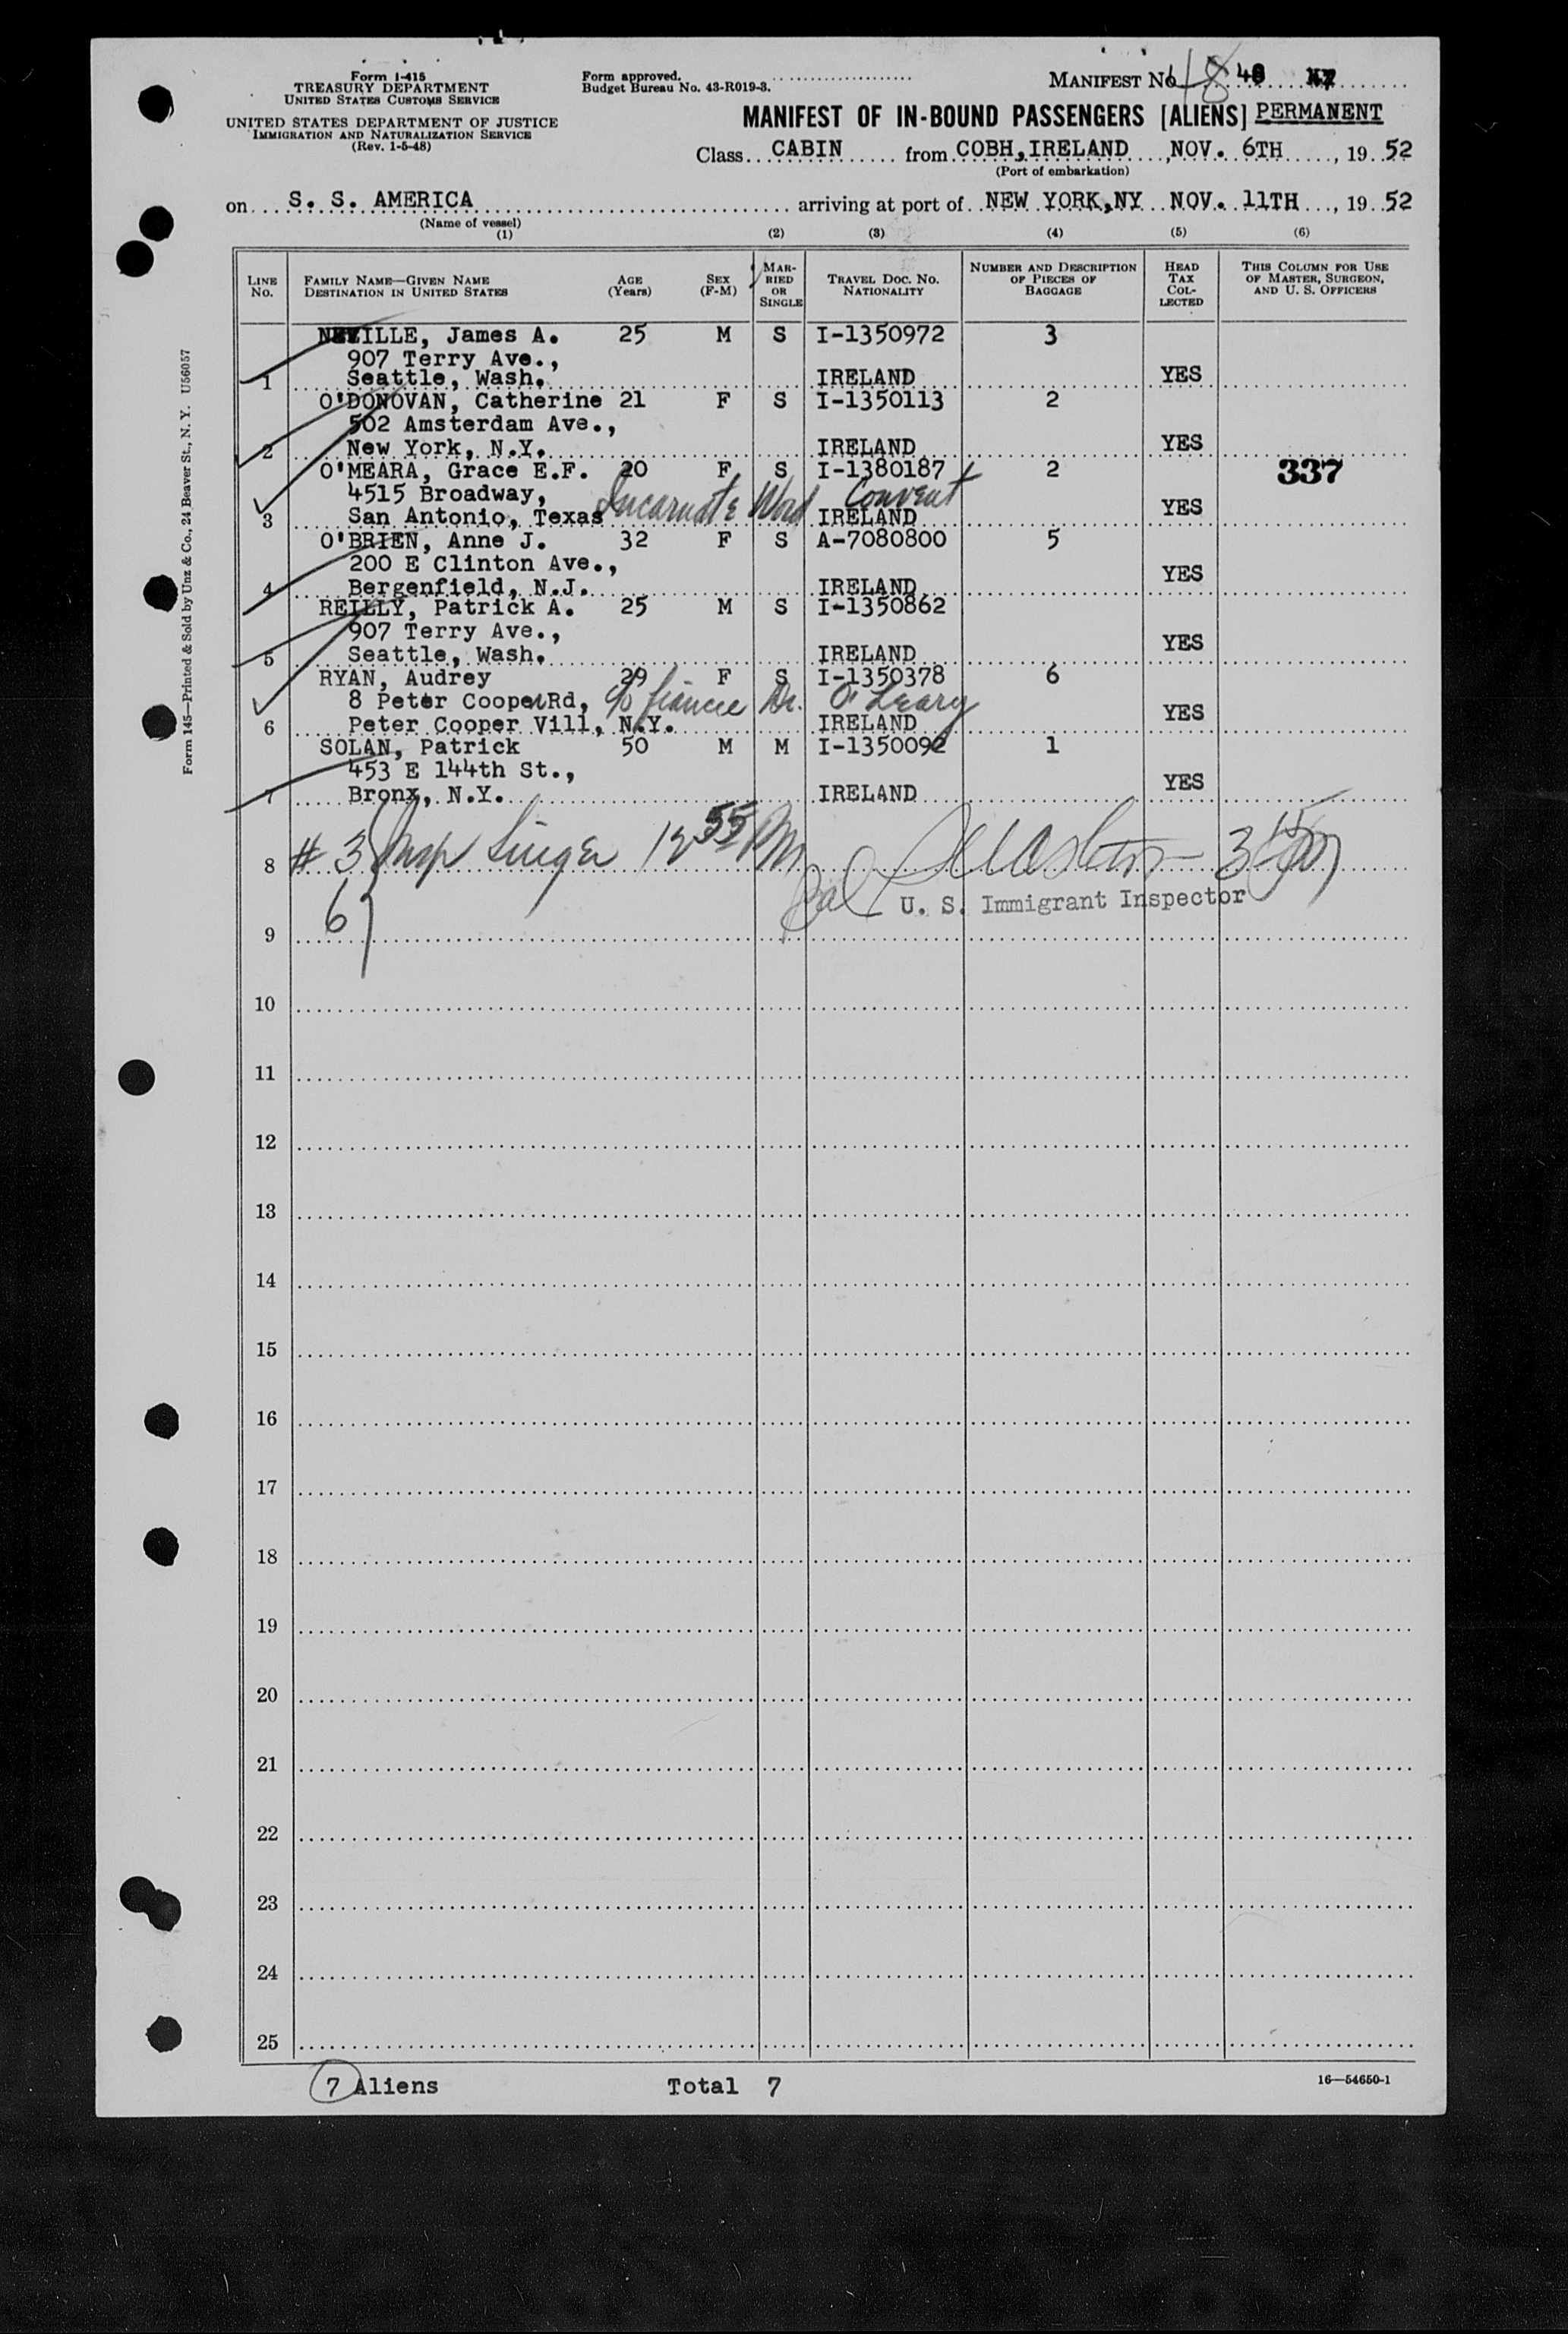 Form I-415
TREASURY DEPARTMENT
UNITED STATES CUSTOMS SERVICE
UNITED STATES DEPARTMENT OF JUSTICE
IMMIGRATION AND NATURALIZATION SERVICE
(Rev. 1-5-48)
Form approved.
Budget Bureau No. 43-R019-3.
MANIFEST No. 48
MANIFEST OF IN-BOUND PASSENGERS [ALIENS] PERMANENT
Class CABIN from COBH, IRELAND, NOV. 6TH, 19 52
(Port of embarkation)
on S. S. AMERICA arriving at port of NEW YORK,NY NOV. 11TH, 19 52
(Name of vessel)
(1) (2) (3) (4) (5) (6)
LINE No. FAMILY NAME—GIVEN NAME DESTINATION IN UNITED STATES AGE (Years) SEX (F-M) MARRIED OR SINGLE TRAVEL DOC. No. NATIONALITY NUMBER AND DESCRIPTION OF PIECES OF BAGGAGE HEAD TAX COLLECTED THIS COLUMN FOR USE OF MASTER, SURGEON, AND U. S. OFFICERS
NEVILLE, James A. 25 M S I-1350972 3
907 Terry Ave.,
1 Seattle, Wash. IRELAND YES
O'DONOVAN, Catherine 21 F S I-1350113 2
502 Amsterdam Ave.,
2 New York, N.Y. IRELAND YES
O'MEARA, Grace E.F. 20 F S I-1380187 2 337
4515 Broadway, Incarnate Word Convent
3 San Antonio, Texas IRELAND YES
O'BRIEN, Anne J. 32 F S A-7080800 5
200 E Clinton Ave.,
4 Bergenfield, N.J. IRELAND YES
REILLY, Patrick A. 25 M S I-1350862
907 Terry Ave.,
5 Seattle, Wash. IRELAND YES
RYAN, Audrey 29 F S I-1350378 6
8 Peter Cooper Rd, c/o fiancee Dr. O'Leary
6 Peter Cooper Vill, N.Y. IRELAND YES
SOLAN, Patrick 50 M M I-1350092 1
453 E 144th St.,
7 Bronx, N.Y. IRELAND YES
8 # 3 Insp Singer 12 55 PM
6
U. S. Immigrant Inspector
9
10
11
12
13
14
15
16
17
18
19
20
21
22
23
24
25
7 Aliens Total 7
16—54650-1
Form 145—Printed & Sold by Unz & Co., 24 Beaver St., N. Y. U56057